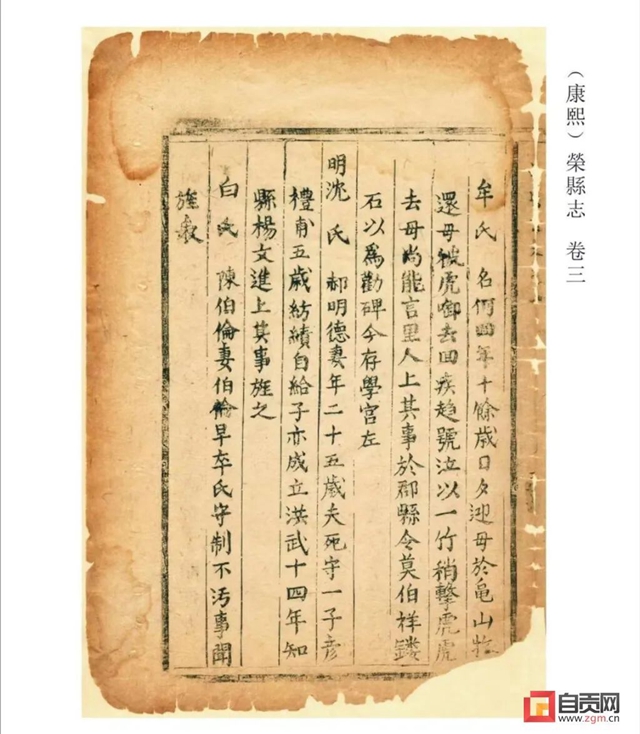 （康熙）榮縣志 卷三
牟氏 名倜四年十餘歲日夕迎母於龜山牧
還母被虎啣去四疾趨號泣以一竹稍擊虎虎
去母尚能言里人上其事於郡縣令莫伯祥鐫
石以爲勸碑今存學宮左
明沈氏 郝明德妻年二十五歲夫死守一子彦
禮甫五歲紡績自給子亦成立洪武十四年知
縣楊文進上其事旌之
白氏 陳伯倫妻伯倫早卒氏守制不汚事聞
旌表
自贡网
www.zgm.cn